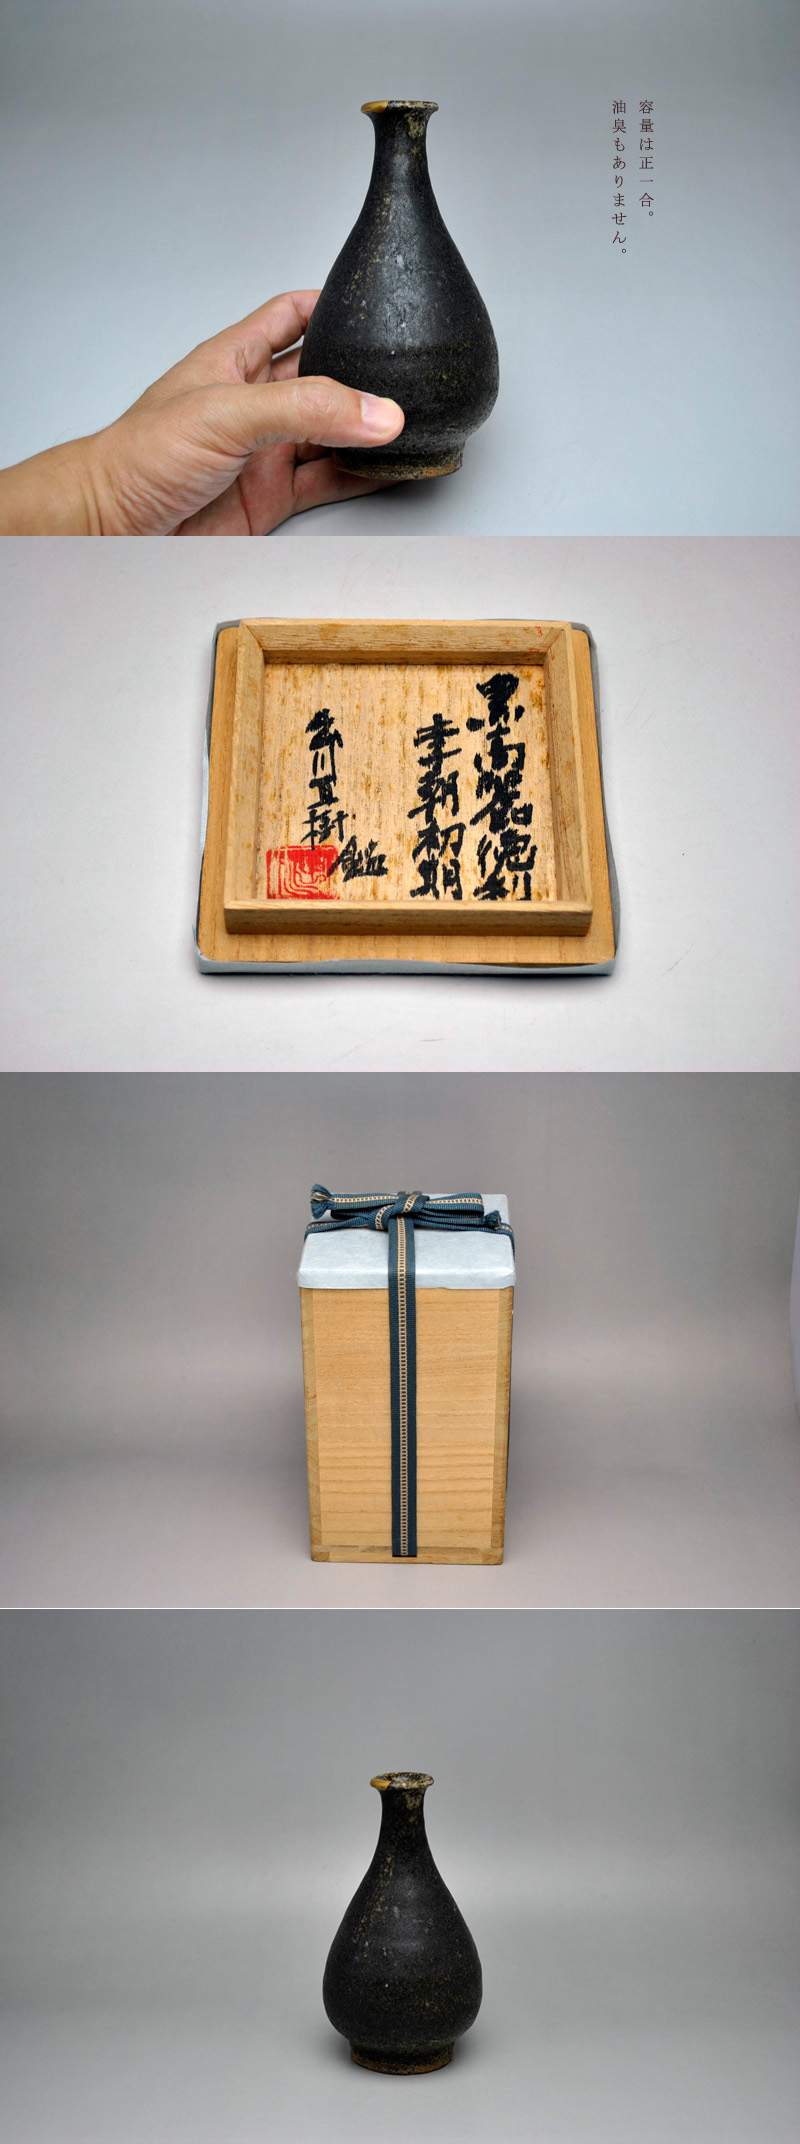 容量は正一合。
油臭もありません。
黒高麗徳利
李朝初期
直樹
鑑